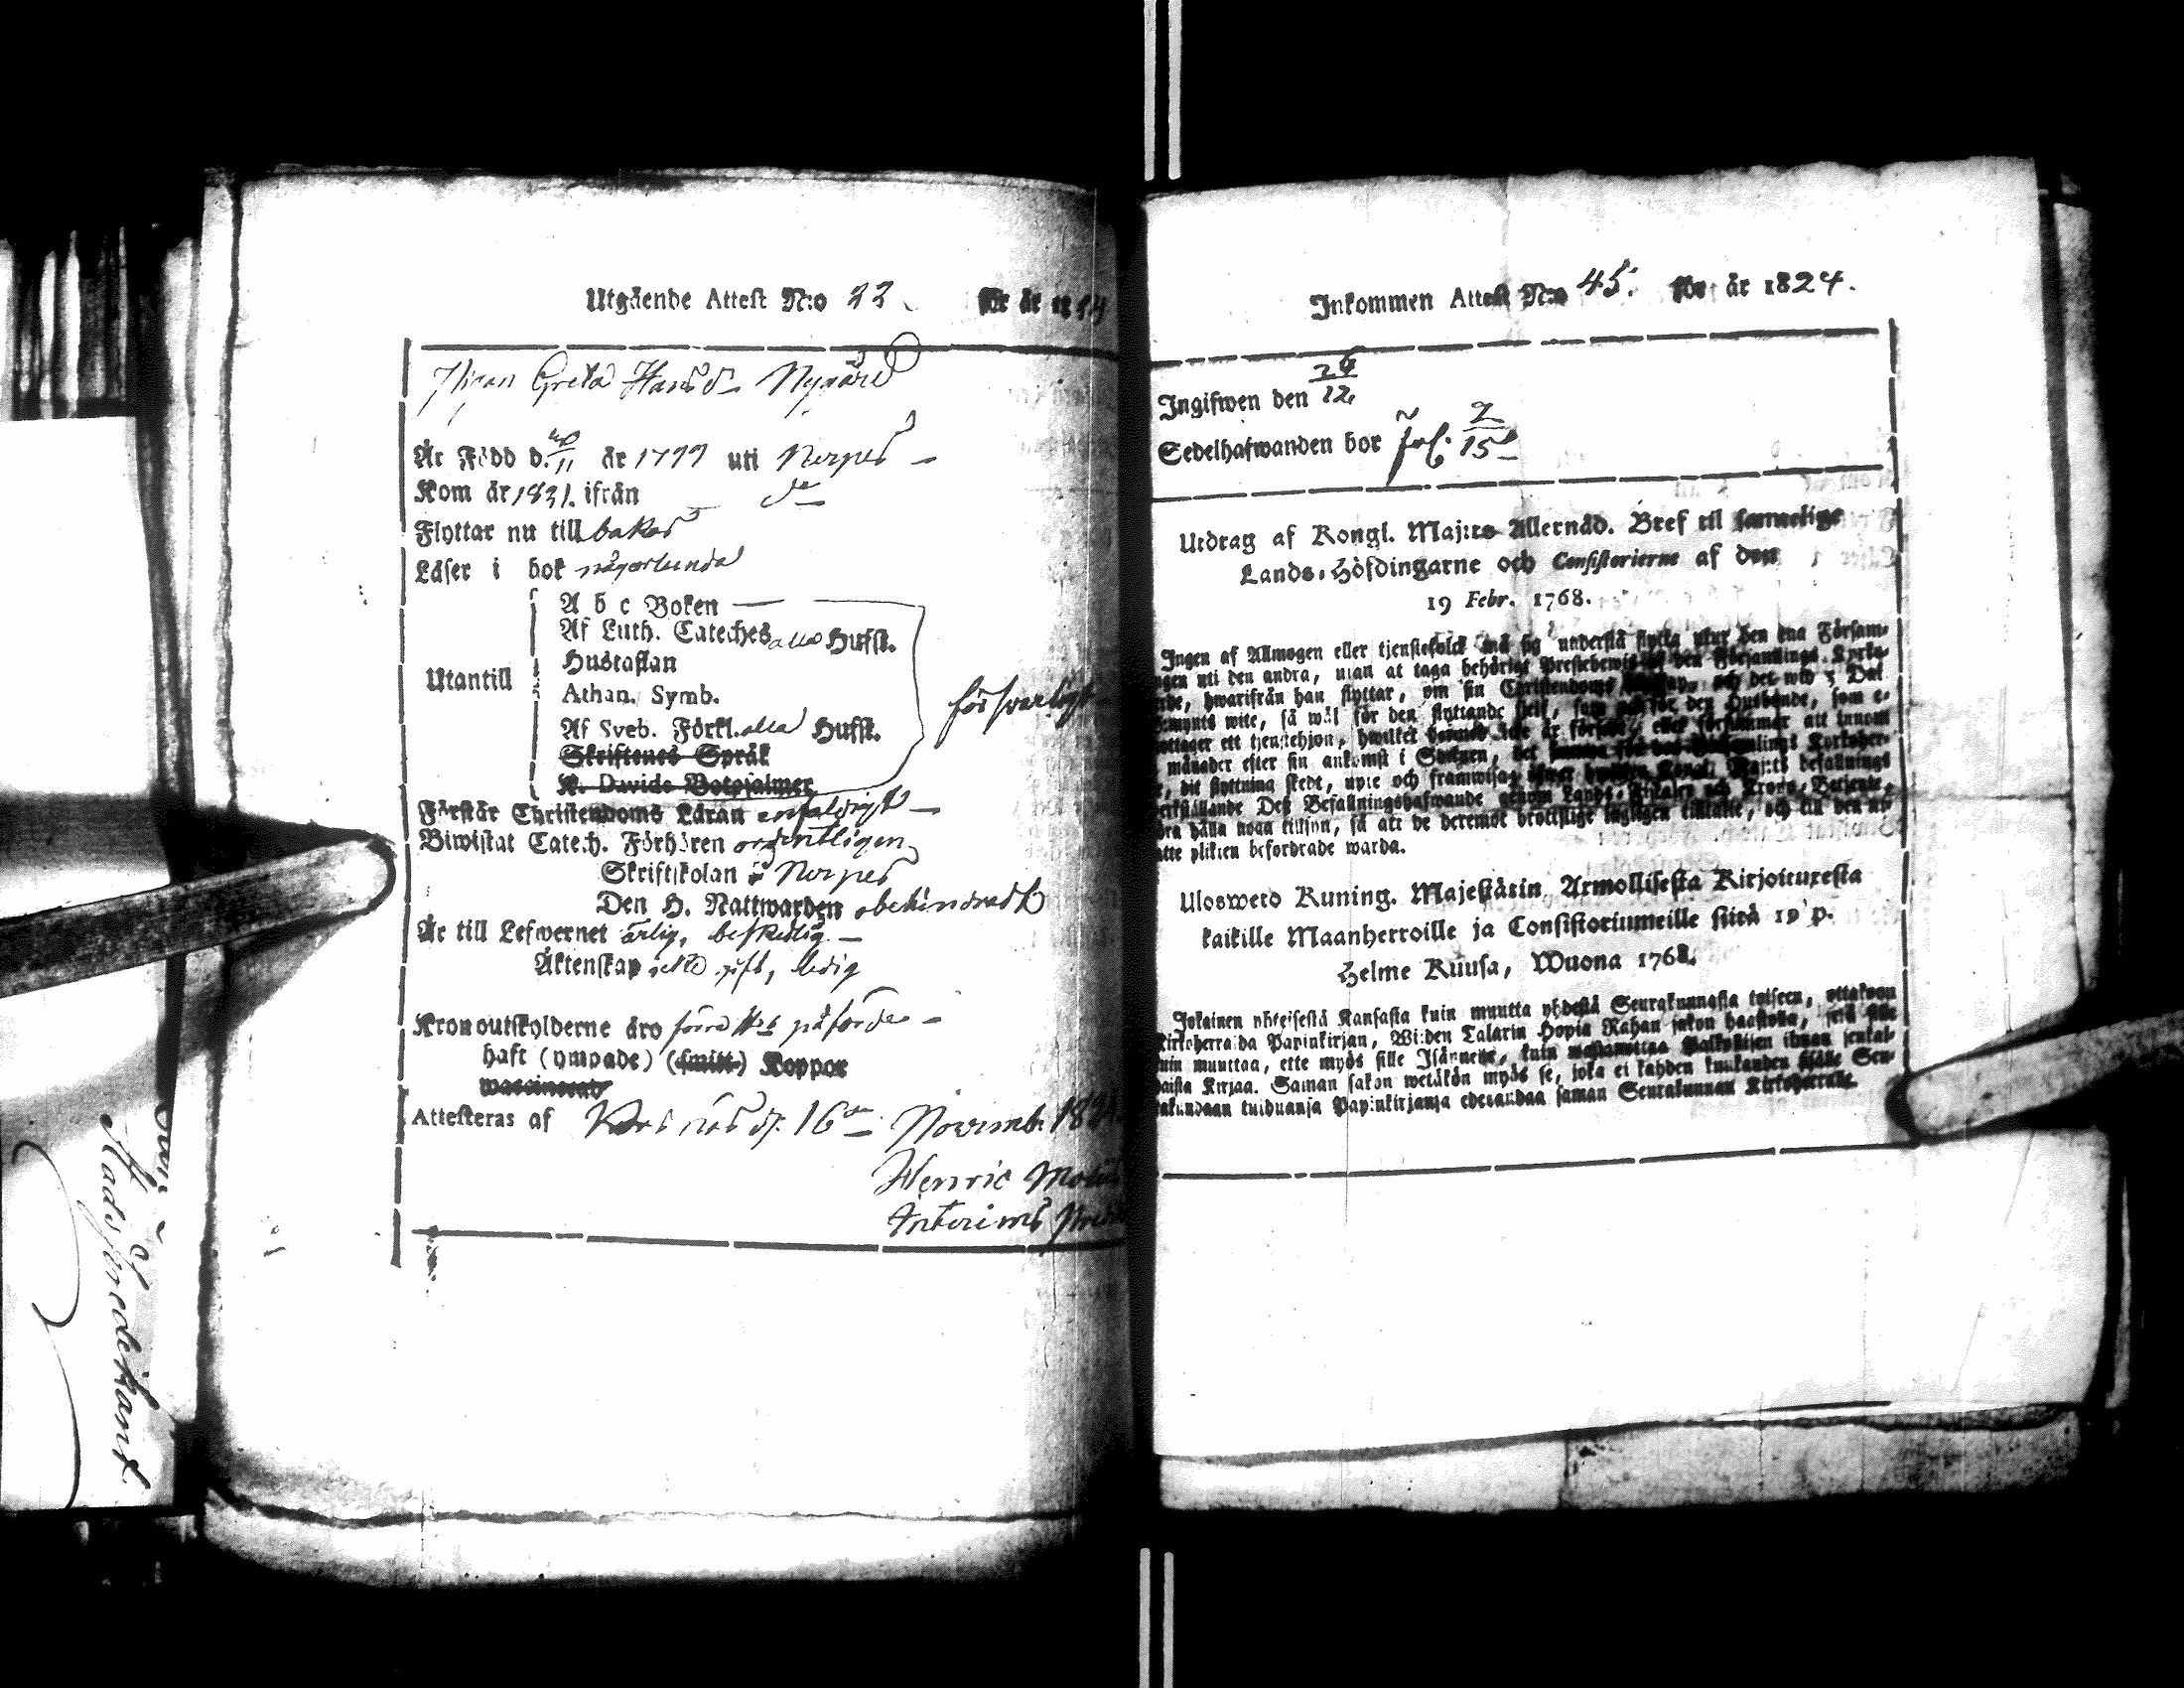 Utgående Attest N:o 22
för år 18
Pigan Greta Hansd:r Nygård
År Född d. 11 år 1777 uti Nerpes
Kom år 1821. ifrån d:o
Flyttar nu till bakas
Läser i bok någorlunda
Utantill
A b c Boken
Af Luth. Cateches alla Hufst.
Hustaflan
Athan. Symb.
Af Sveb. Förkl. alla Hufst.
Skriftenes Språk
K. Davids Botpsalmer
försvarligt
Förstår Christendoms Läran enfaldigt
Biwistat Catech. Förhören ordentligen
Skriftskolan i Nerpes
Den H. Nattwarden obehindradt
År till Lefwernet ärlig, beskedlig
Äktenskap icke gift, ledig
Kronoutskylderne äro påförde
haft (ympade) (smitt.) Koppor
waccinerad
Attesteras af d. 16 Novemb. 18
Henric
Interims
Inkommen Attest N:o 45. för år 1824.
Ingifwen den 26/12.
Sedelhafwanden bor fol. 15
Utdrag af Kongl. Maj:ts Allernåd. Bref til samtelige
Lands-Höfdingarne och Consistorierne af den
19 Febr. 1768.
Ingen af Allmogen eller tjenstefolck må sig understå flytta utur den ena Försam-
gen uti den andra, utan at taga behörigt Prestebewis af den Församlings Kyrko-
rde, hwarifrån han flyttar, om sin Christendoms och det wid 5 Dal
emynts wite, så wäl för den flyttande sielf, som för den Husbonde, som e-
ottager ett tjenstehjon, hwilket icke är försedt, eller försummar att innom
månader efter sin ankomst i Socknen, det Församlings Kyrkoher-
, dit flyttning skedt, upte och framwisa Kongl. Maj:ts befallnings
erkställande Dess Befallningshafwande genom Lands-Fiskaler och Krono-Betjente,
dra hålla noga tillsyn, så att de deremot brottslige lagligen tilltalte, och till den ut-
atte plikten befordrade warda.
Uloswero Kuning. Majestäsin Armollisesta Kirjoituxesta
kaikille Maanherroille ja Consistoriumeille siitä 19 p.
Helme Kuusa, Wuona 1768.
Jokainen yhteisestä Kansasta kuin muutta yhdestä Seurakunnasta toiseen, ottakoon
Kirkoherralda Papinkirjan, Wiiden Talarin Hopia Rahan sakon haastolla, sekä sille
uin muuttaa, ette myös sille Isännelle, kuin wastanottaa Palkollisen ilman senkal-
daista Kirjaa. Saman sakon wetäkön myös se, joka ei kahden kuukauden sisälle Seu-
rakundaan tulduansa Papinkirjansa edesandaa saman Seurakunnan Kirkoherralle.